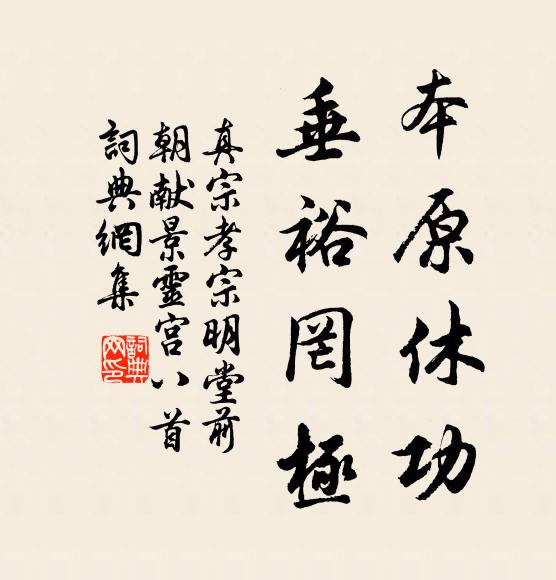 本原休功
垂裕罔極
真宗孝宗明堂前
朝献景靈宮八首
詞典網集
詞典網印